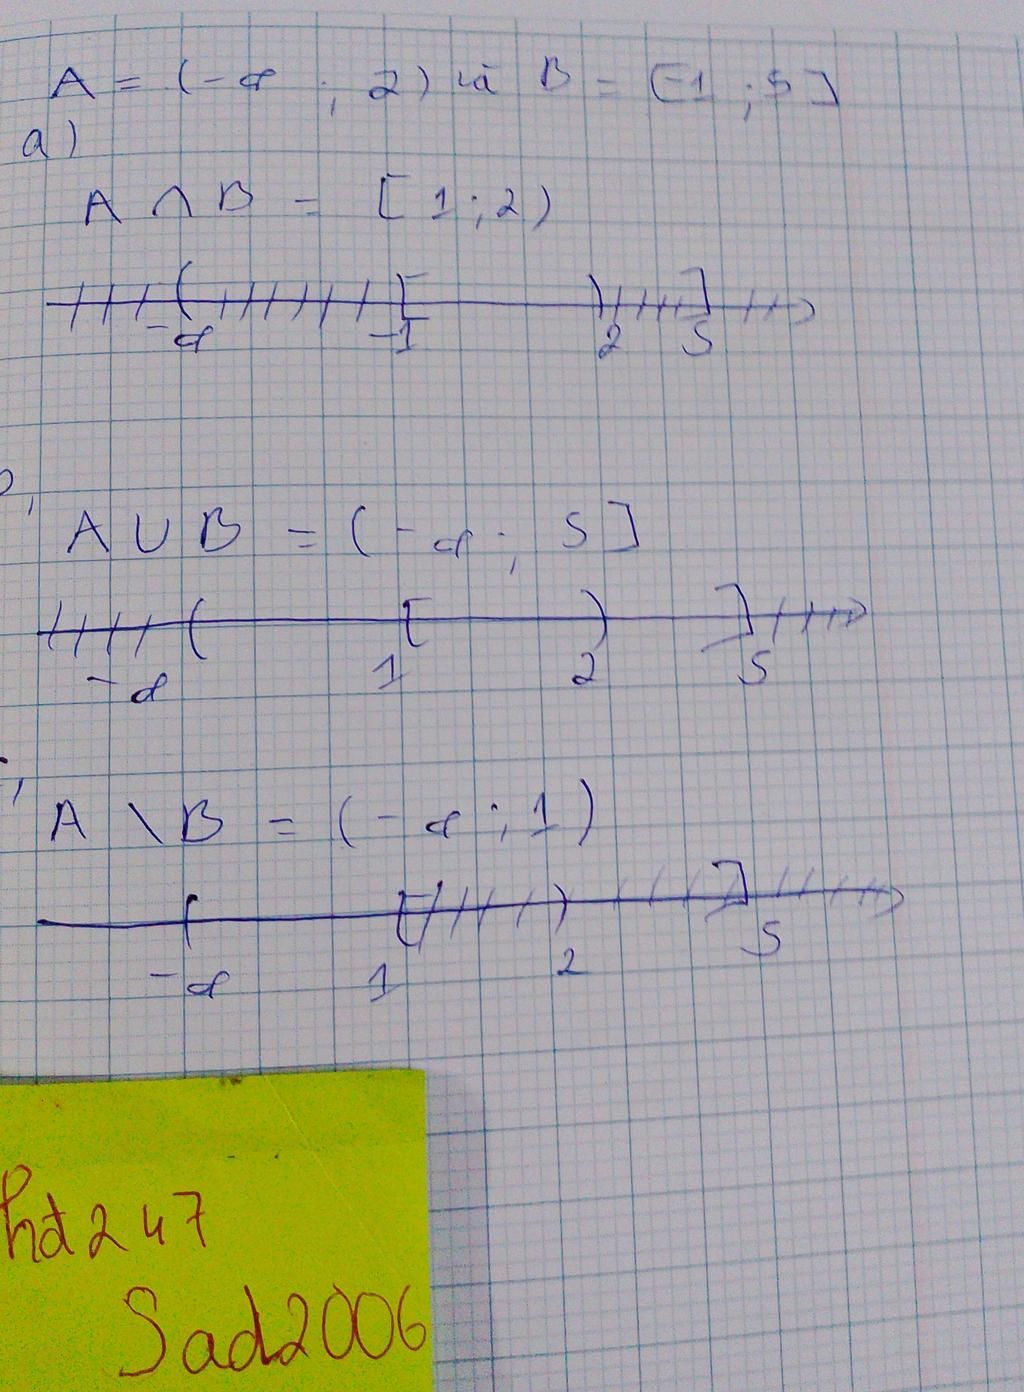 A = (-∞ ; 2) và B = [-1 ; 5]
a)
A ∩ B = [1 ; 2)
-∞ -1 2 5
A ∪ B = (-∞ ; 5]
-∞ 1 2 5
A \ B = (-∞ ; 1)
-∞ 1 2 5
Phd247
Sad2006